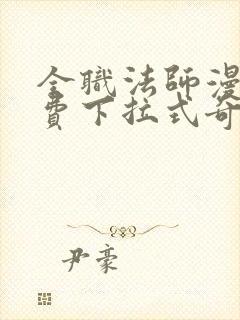 全職法師漫
費下拉式奇
尹豪